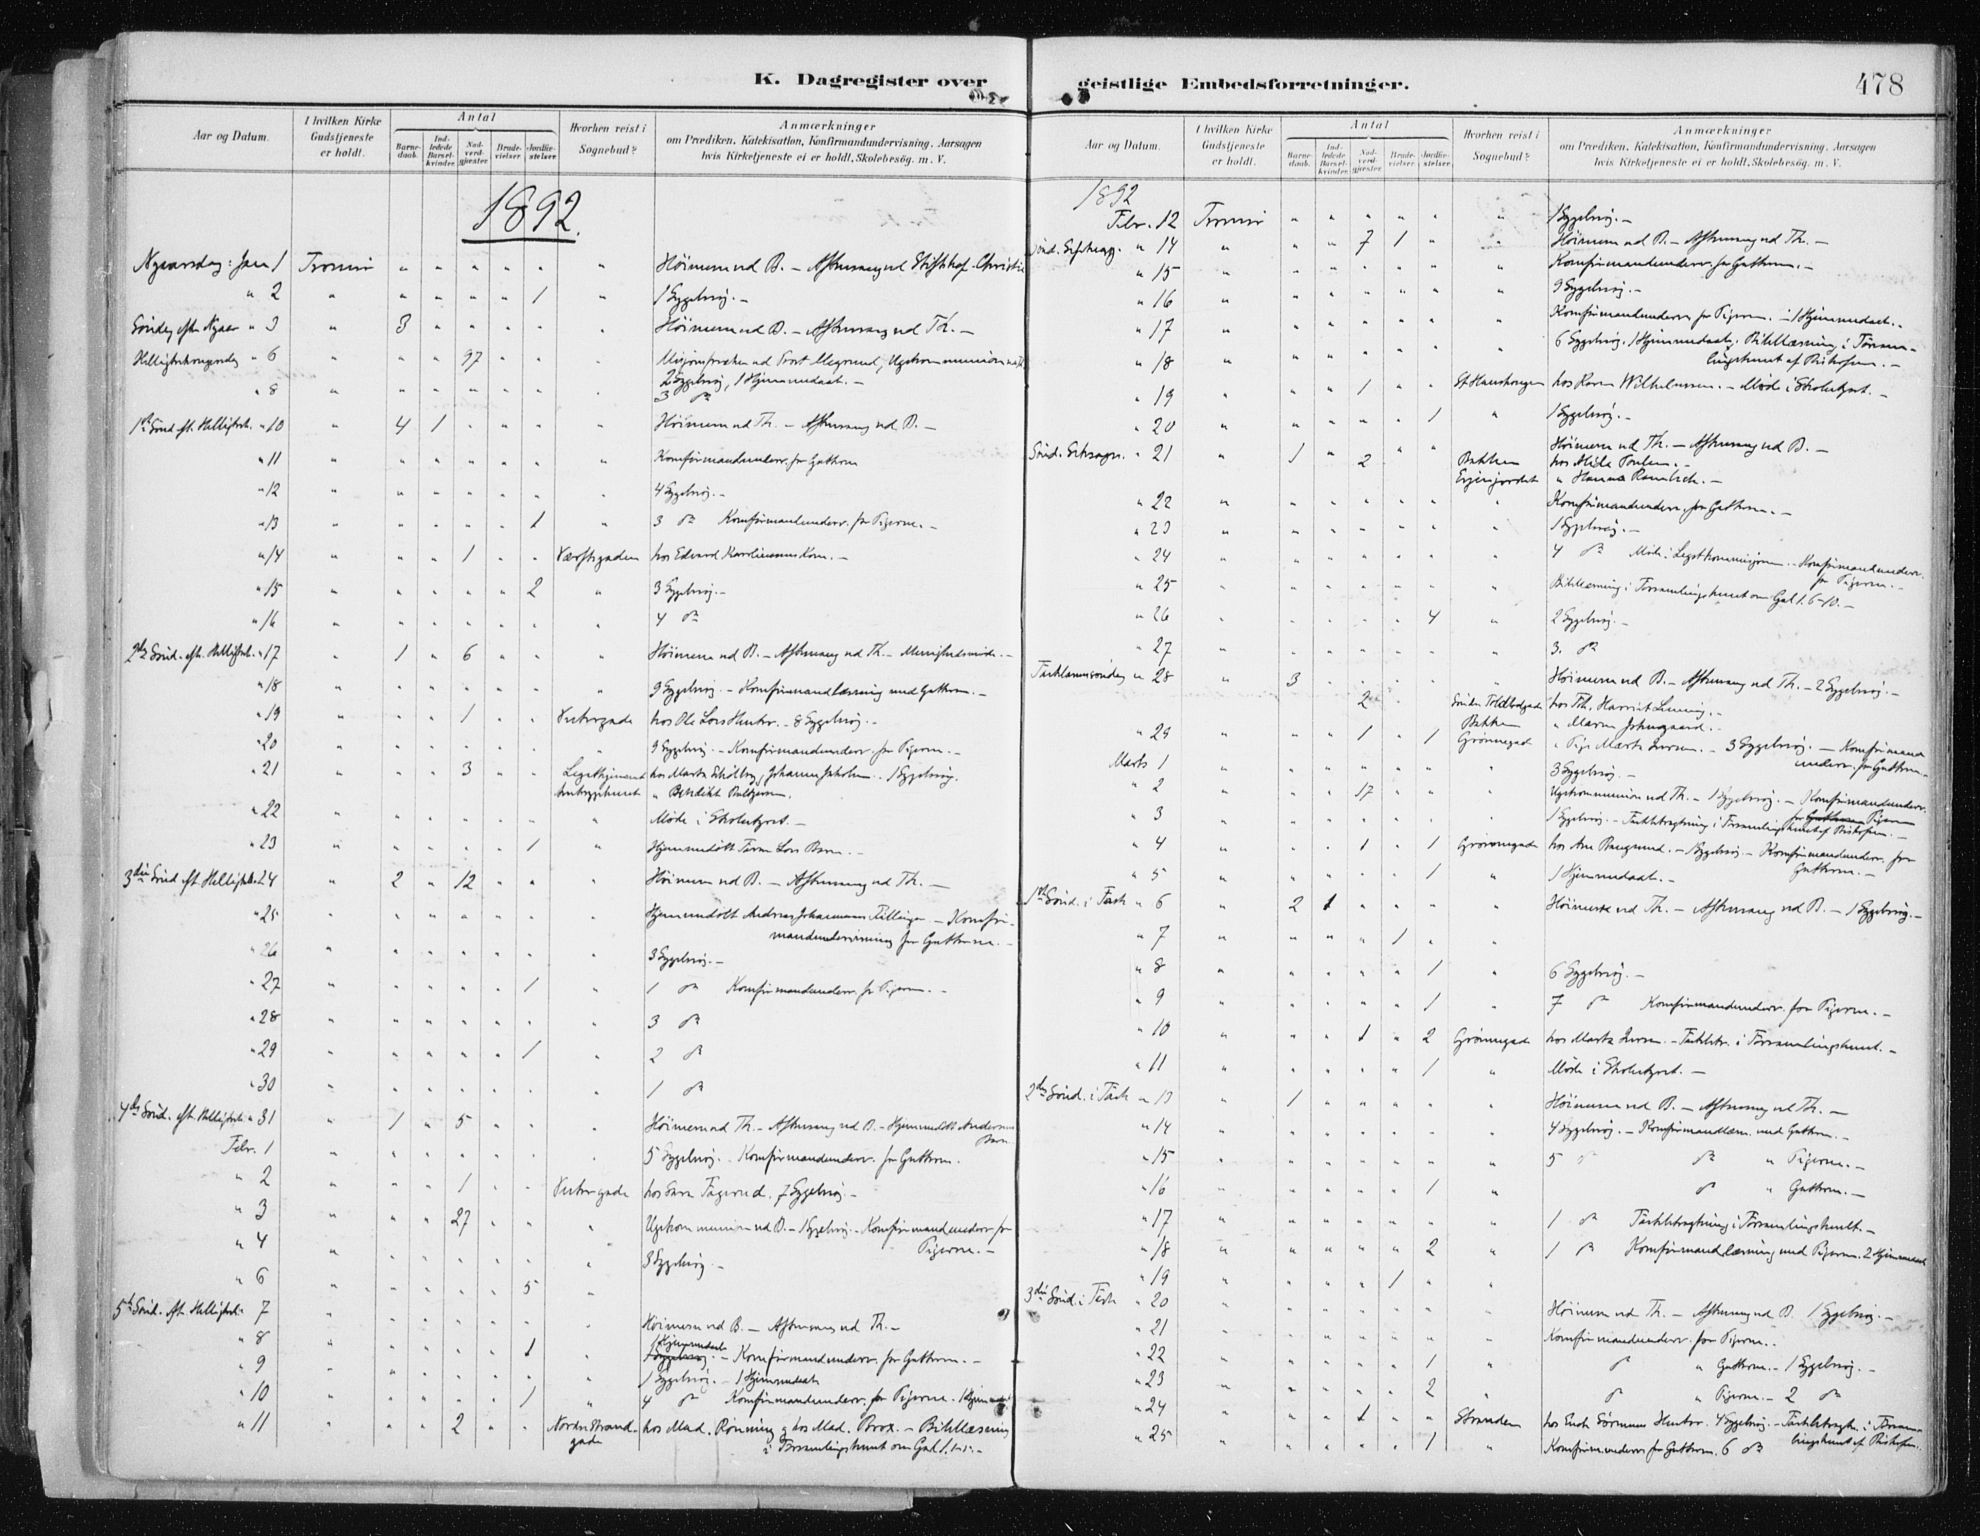 K. Dagregister over geistlige Embedsforretninger.
478
Aar og Datum.
I hvilken Kirke Gudstjeneste er holdt.
Antal
Barnedaab.
Indledede Barselkvinder.
Nadverdgjester
Brudevielser
Jordfæstelser
Hvorhen reist i Sognebud?
Anmærkninger
om Prædiken, Katekisation, Konfirmandundervisning, Aarsagen
hvis Kirketjeneste ei er holdt, Skolebesøg. m. V.
1892.
Nyaarsdag: Jan 1 Tromsø " " " " " " Høimesse ved B. – Aftensang ved Stiftskap. Christie
" 2 " " " " " 1 " 1 Sygebesøg. –
Søndag eft. Nyaar " 3 " 3 " " " " " Høimesse ved B. – Aftensang ved Th. –
Helligtrekongersdag " 6 " " " 97 " " "
2 Sygebesøg, 1 Hjemmedaab. –
" 8 " " " " " " " 3 do
1ste Sønd. eft. Helligtrek. " 10 " 4 1 " " " " Høimesse ved Th. – Aftensang ved B. –
" 11 " " " " " " " Konfirmandunderv. for Gutterne
" 12 " " " " " " " 4 Sygebesøg. –
" 13 " " " " " 1 " 3 do Konfirmandunderv. for Pigerne. –
" 14 " " " 1 " " Værftsgaden hos Edvard
" 15 " " " " " 2 " 3 Sygebesøg. –
" 16 " " " " " " " 4 do
2den Sønd. eft. Helligtrek. " 17 " 1 " 6 " " " Høimesse ved B. – Aftensang ved Th. – Menighedsmøde. –
" 18 " " " " " " " 9 Sygebesøg – Konfirmandlæsning med Gutterne. –
" 19 " " " 1 " " Vestregade hos Ole Lars 8 Sygebesøg. –
" 20 " " " " " " " 9 Sygebesøg – Konfirmandunderv. for Pigerne. –
" 21 " " " 3 " " hos Marta 1 Sygebesøg.
" 22 " " " " " " " Møde i Skolestyret. –
" 23 " " " " " 1 "
3die Sønd. eft. Helligtrek. 24 " 2 " 12 " " " Høimesse ved B. – Aftensang ved Th. –
" 25 " " " " " " Hjemmedøbt Andreas – Konfirmandundervisning for Gutterne. –
" 26 " " " " " " " 3 Sygebesøg. –
" 27 " " " " " 1 " 1 do Konfirmandunderv. for Pigerne. –
" 28 " " " " " " " 3 do
" 29 " " " " " 1 " 2 do
" 30 " " " " " " " 1 do
4de Sønd. eft. Helligtrek. " 31 " 1 " 5 " " " Høimesse ved Th. – Aftensang ved B. – Hjemmedøbt
Febr. 1 " " " " " " " 5 Sygebesøg. Konfirmandunderv. for Gutterne.
" 2 " " " 1 " " Vestregade hos 7 Sygebesøg –
" 3 " " " 27 " " " Ugekommunion ved B. – 1 Sygebesøg. – Konfirmandunderv. for
Pigerne. –
" 4 " " " " " " " 3 Sygebesøg. –
" 6 " " " " " 5 "
5te Sønd. eft. Helligtrek. 7 " " " " " " " Høimesse ved B. – Aftensang ved Th. –
" 8 " " " " " 1 " 1 Hjemmedaab – Konfirmandunderv. for Gutterne. –
" 9 " " " " " " " 1 Sygebesøg. – 1 Hjemmedaab
" 10 " " " " " 1 " 4 do Konfirmandunderv. for Pigerne.
" 11 " " " 2 " " Nordre Strandgade hos Mad. Rønning & hos Mad. Brox. – Bibellæsning
i Forsamlingshuset om Gal 1.
Aar og Datum.
I hvilken Kirke Gudstjeneste er holdt.
Antal
Barnedaab.
Indledede Barselkvinder.
Nadverdgjester
Brudevielser
Jordfæstelser
Hvorhen reist i Sognebud?
Anmærkninger
om Prædiken, Katekisation, Konfirmandundervisning, Aarsagen
hvis Kirketjeneste ei er holdt, Skolebesøg. m. V.
1892
Febr. 12 Tromsø " " " " " " 1 Sygebesøg. –
Sønd. Septuag. " 14 " " " 7 1 " " Høimesse ved B. – Aftensang ved Th. –
" 15 " " " " " " " Konfirmandunderv. for Gutterne. –
" 16 " " " " " " " 9 Sygebesøg. –
" 17 " " " " " " " Konfirmandunderv. for Pigerne. – 1 Hjemmedaab. –
" 18 " " " " " " " 6 Sygebesøg. 1 Hjemmedaab. Bibellæsning i Forsamlingshuset af Biskopen. –
" 19 " " " 1 " " St Hanshaugen hos Karen Wilhelmsen. – Møde i Skolestyret. –
" 20 " " " " " 1 " 1 Sygebesøg. –
Sønd. Seksages. " 21 " 1 " 2 " " Høimesse ved Th. – Aftensang ved B. –
Bakken
" Hanna
" 22 " " " " " " " Konfirmandunderv. for Gutterne. –
" 23 " " " " " " " 1 Sygebesøg. –
" 24 " " " " " " " 4 do Møde i Legatkommisjonen. – Konfirmandunderv.
for Pigerne. –
" 25 " " " " " " " Bibellæsning i Forsamlingshuset om Gal 1. 6-10. –
" 26 " " " " " 4 " 2 Sygebesøg. –
" 27 " " " " " " " 3. do
Fastelavnssøndag " 28 " 3 " " " " " Høimesse ved B. – Aftensang ved Th. – 2 Sygebesøg. –
2 Søndre Toldbodgade hos Harriet
Bakken
" 29 " " " 1 " 1 Grønnegad " Pige Marta – 3 Sygebesøg. – Konfirmandunderv. for Gutterne. –
Marts 1 " 3 Sygebesøg. –
" 2 " " " 17 " " " Ugekommunion ved Th. – 1 Sygebesøg. – Konfirmandunderv.
for Pigerne
" 3 " " " " " " " 1 Sygebesøg. – Fastebetragtning i Forsamlingshuset af Biskopen. –
" 4 " " " 1 " 1 Grønnegad hos Ane – Sygebesøg – Konfirmandunderv. for
Gutterne. –
" 5 " " " " " 1 " 1 Hjemmedaab. –
1ste Sønd. i Fasten " 6 " 2 1 " " " " Høimesse ved Th. – Aftensang ved B. – 1 Sygebesøg. –
" 7 " " " " 1 " "
" 8 " " " " " 1 " 6 Sygebesøg. –
" 9 " " " " " 1 " 7 do Konfirmandunderv. for Pigerne. –
" 10 " " " 1 " 2 Grønnegade hos Marta – Fastebetr. i Forsamlingshuset. –
" 11 " " " " " 1 " Møde i Skolestyret. –
2den Sønd. i Fasten " 13 " 1 " " " " " Høimesse ved B. – Aftensang ved Th. –
" 14 " " " " " " " 4 Sygebesøg. – Konfirmandlæsn. med Gutterne. –
" 15 " " " " " " " 5 do do " Pigerne. –
" 16 " " " " " 1 " do " Gutterne. –
" 17 " " " " " " " 1 do Fastebetragtning i Forsamlingshuset. –
" 18 " " " " " 2 " 1 do Konfirmandlæsning med Pigerne. 2 Hjemmedaab
" 19 " " " " 1 " "
3die Sønd. i Fasten " 20 " " " " " " " Høimesse ved Th. – Aftensang ved B. 1 Sygebesøg. –
" 21 " " " " " " " Konfirmandunderv. for Pigerne. –
" 22 " " " " " 1 " do " Gutterne. – 1 Sygebesøg. –
" 23 " " " " " 2 " do " Pigerne. – 2 do
" 24 " " " 1 " " Stranden hos 4 Sygebesøg. – Fastebetragtn. i Forsamlingshuset af Biskopen.
" 25 " " " " " 1 " Konfirmandunderv. for Gutterne. 6 do